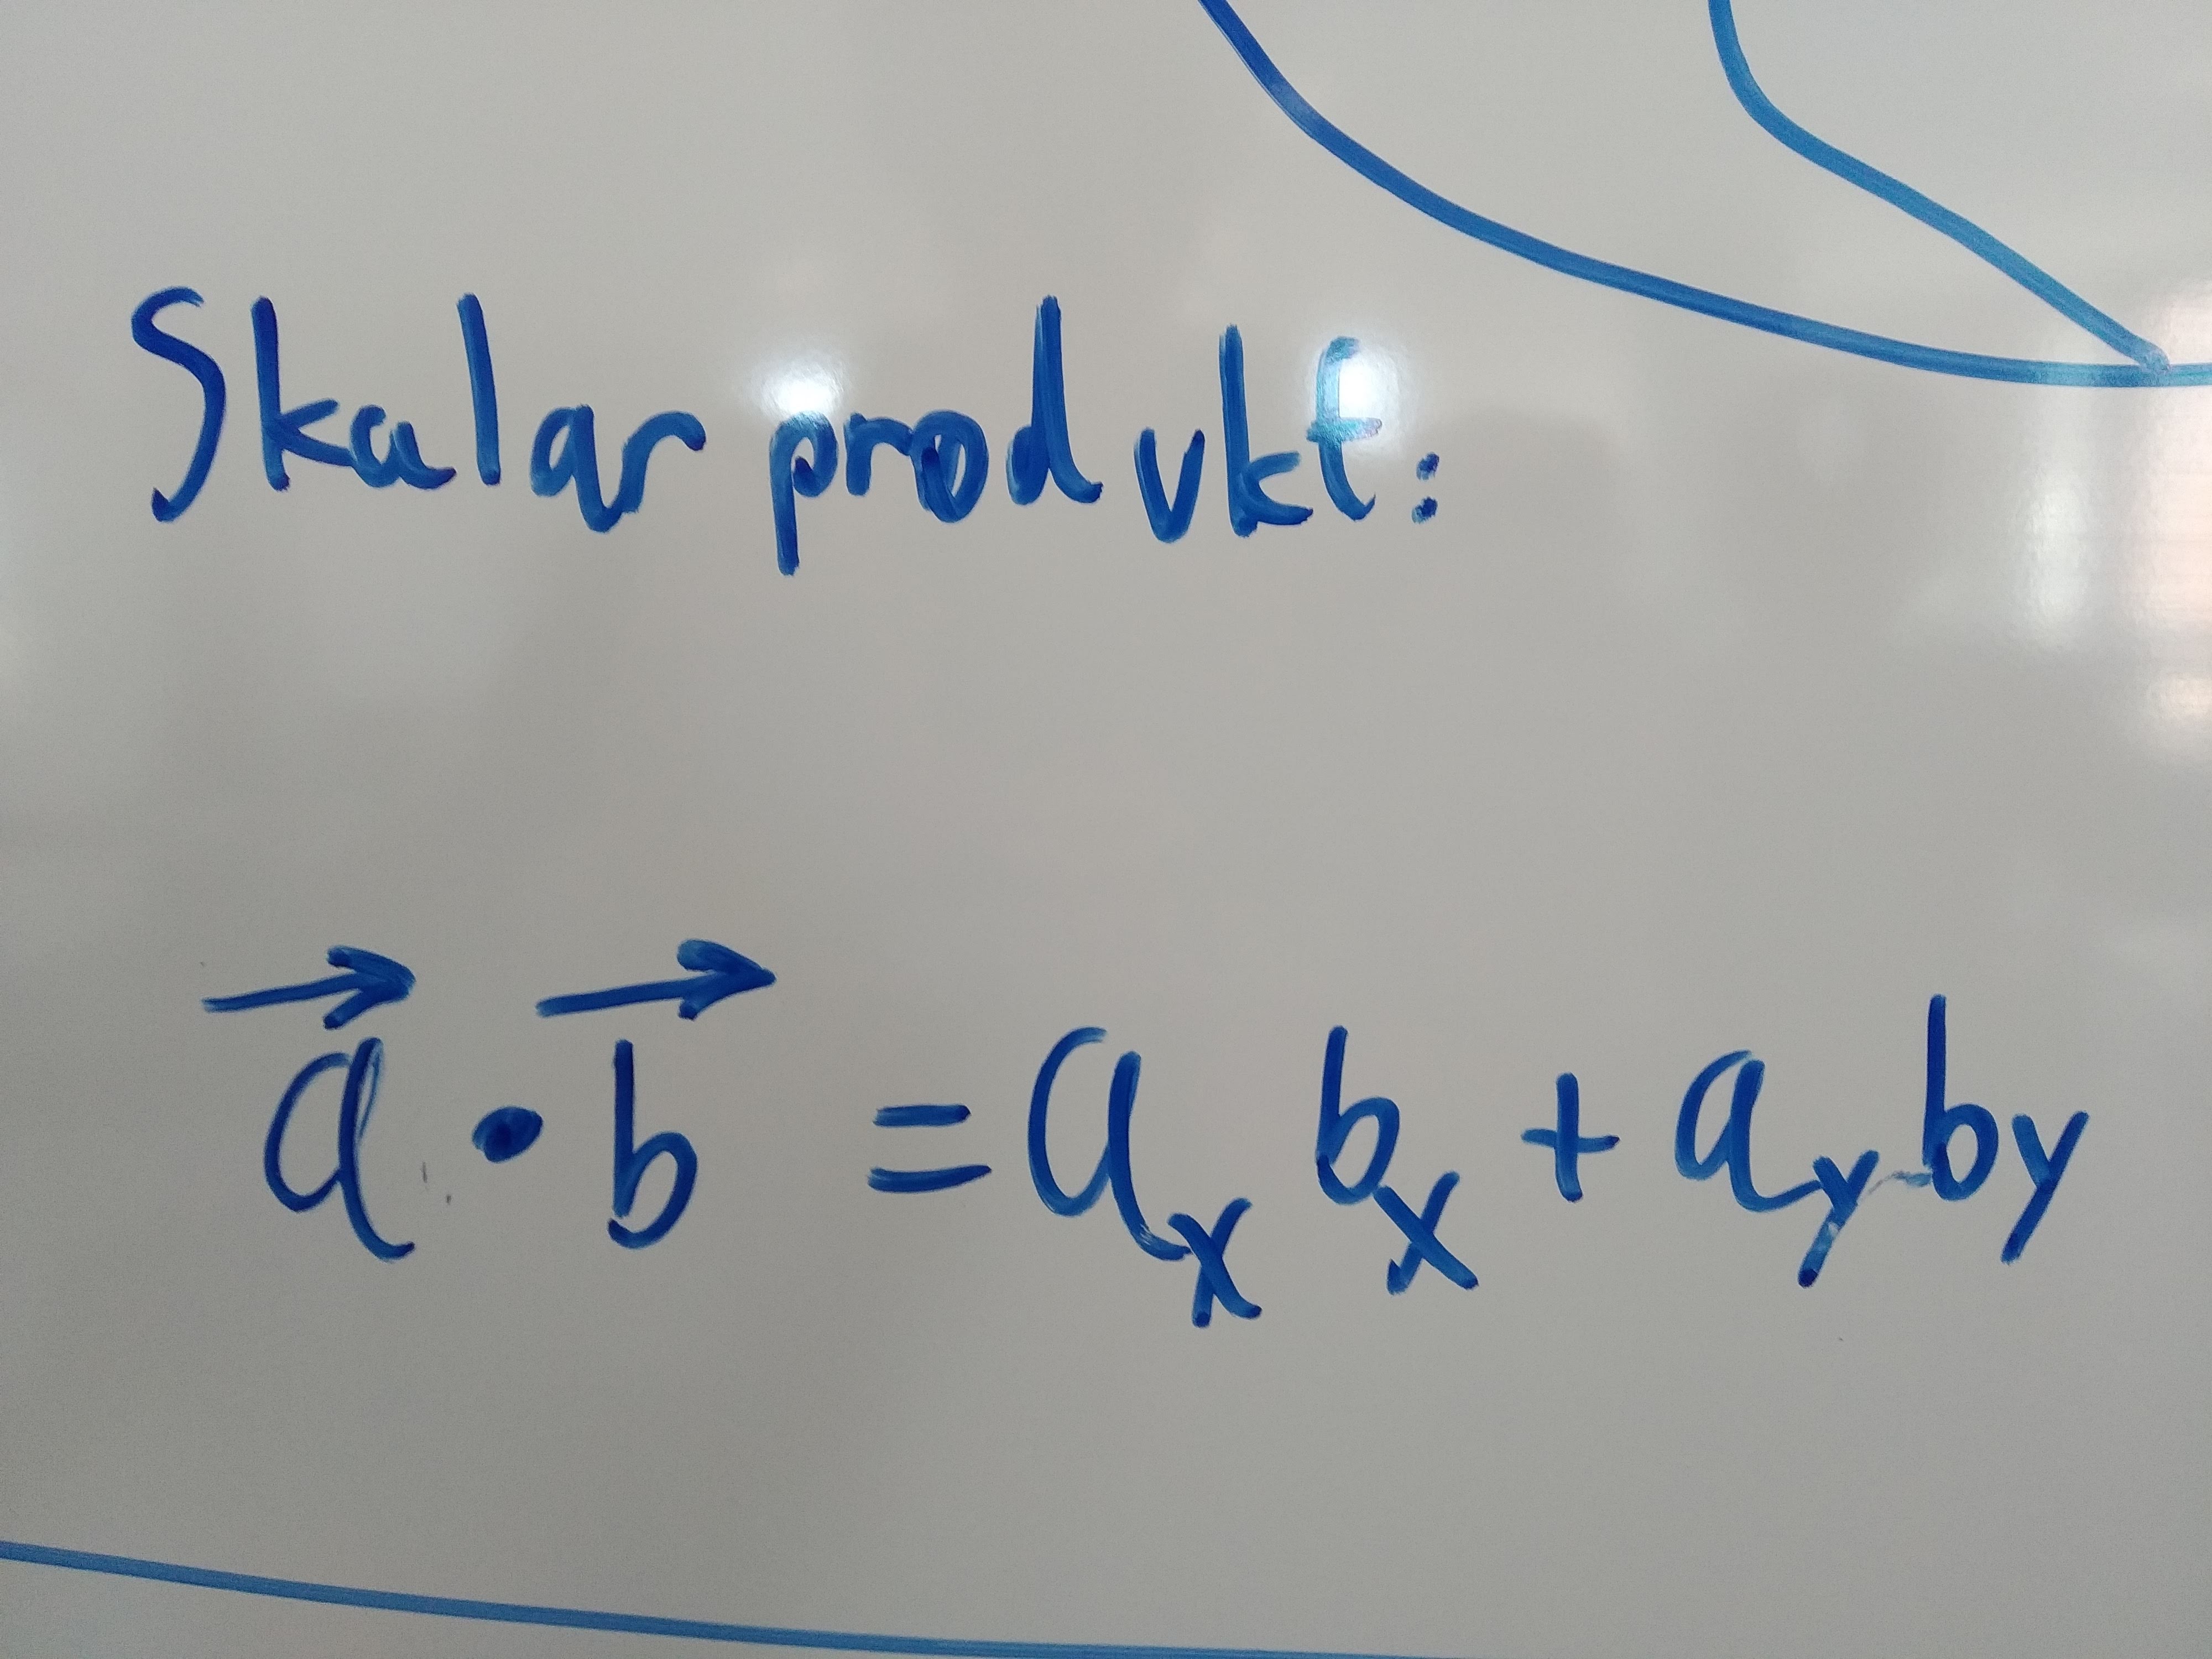 Skalarprodukt:
$\vec{a} \cdot \vec{b} = a_x b_x + a_y b_y$